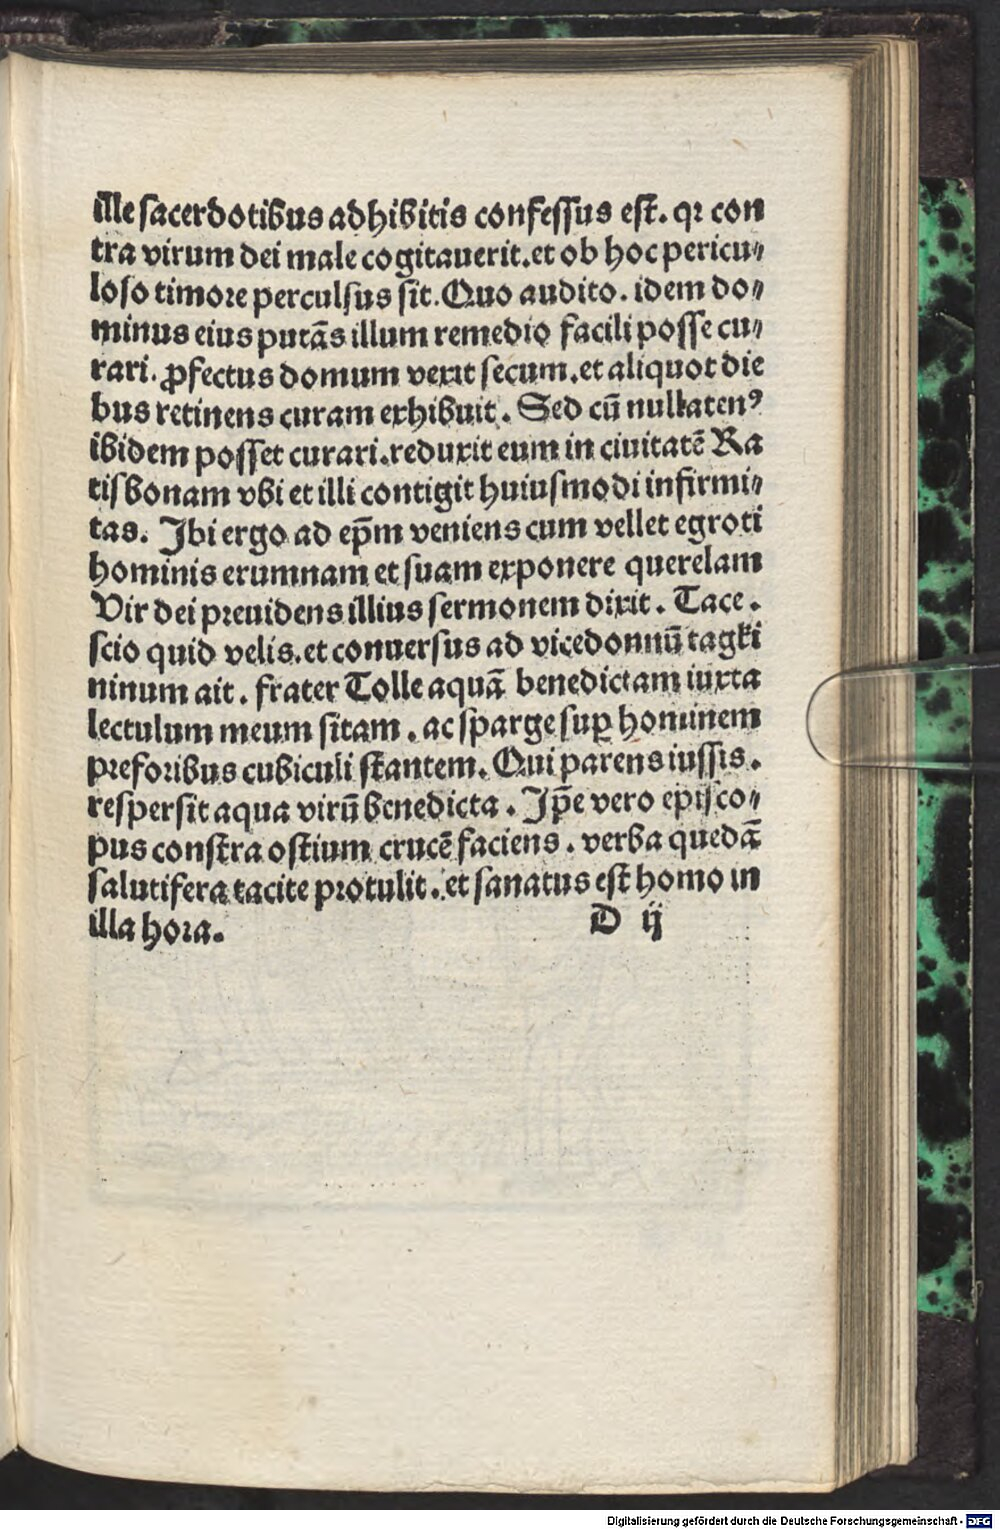 ille sacerdotibus adhibitis confessus est. qꝛ con
tra virum dei male cogitauerit. et ob hoc pericu⸗
loso timore perculsus sit. Quo audito. idem do⸗
minus eius putãs illum remedio facili posse cu⸗
rari. ꝓfectus domum vexit secum. et aliquot die
bus retinens curam exhibuit. Sed cũ nullatenꝰ
ibidem posset curari. reduxit eum in ciuitatẽ Ra
tisbonam vbi et illi contigit huiusmodi infirmi⸗
tas. Ibi ergo ad ep̃m veniens cum vellet egroti
hominis erumnam et suam exponere querelam
Vir dei preuidens illius sermonem dixit. Tace.
scio quid velis. et conuersus ad vicedonnũ tagki
ninum ait. frater Tolle aquã benedictam iuxta
lectulum meum sitam. ac sparge suꝑ hominem
preforibus cubiculi stantem. Qui parens iussis.
respersit aqua virũ benedicta. Ip̃e vero episco⸗
pus constra ostium crucẽ faciens. verba quedã
salutifera tacite protulit. et sanatus est homo in
illa hora. D ij
Digitalisierung gefördert durch die Deutsche Forschungsgemeinschaft - DFG